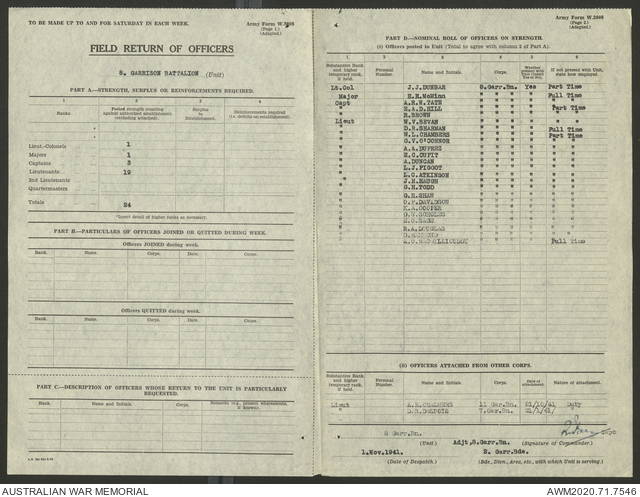 TO BE MADE UP TO AND FOR SATURDAY IN EACH WEEK.
Army Form W.3008
(Page 1.)
(Adapted.)
FIELD RETURN OF OFFICERS
8. GARRISON BATTALION (Unit)
PART A.—STRENGTH, SURPLUS OR REINFORCEMENTS REQUIRED.
1 2 3 4
Ranks. Posted strength counting against authorised establishment (excluding attached). Surplus to Establishment. Reinforcements required (i.e. deficits on establishment).
Lieut.-Colonels 1
Majors 1
Captains 3
Lieutenants 19
2nd Lieutenants
Quartermasters
Totals 24
*Insert detail of higher ranks as necessary.
PART B.—PARTICULARS OF OFFICERS JOINED OR QUITTED DURING WEEK.
Officers JOINED during week.
Rank. Name. Corps. Date.
Officers QUITTED during week.
Rank. Name. Corps. Date.
PART C.—DESCRIPTION OF OFFICERS WHOSE RETURN TO THE UNIT IS PARTICULARLY REQUESTED.
Rank. Name and Initials. Corps. Remarks (e.g., present whereabouts, if known).
Army Form W.3008
(Page 2.)
(Adapted.)
PART D.—NOMINAL ROLL OF OFFICERS ON STRENGTH.
(i) Officers posted to Unit (Total to agree with column 2 of Part A).
1 2 3 4 5 6
Substantive Rank and higher temporary rank, if held. Personal Number. Name and Initials. Corps. If not present with Unit, state how employed.
Lt.Col J.J.DUNBAR 8.Garr.Bn. Yes Part Time
Major E.H.McMinn " " Full Time
Capt A.R.W.TATE " " Part Time
" H.A.D.HILL " "
" R.BROWN " "
Lieut W.V.BEVAN " "
" D.R.SHARMAN " " Full Time
" W.L.CHAMBERS " " Part Time
" G.V.O'CONNOR " "
" A.A.DUPREZ " "
" E.C.CUFIT " "
" A.DUNCAN " "
" L.J.PIGGOT " "
" L.C.ATKINSON " "
" J.H.HAUGH " "
" G.H.TODD " "
" G.H.SHAW " "
" O.P.DAVIDSON " "
" K.A.COOPER " "
" " "
" " "
" R.A.DOUGLAS " "
" " "
" " " Full Time
(ii) OFFICERS ATTACHED FROM OTHER CORPS.
Substantive Rank and higher temporary rank, if held. Personal Number. Name and Initials. Corps. Date of attachment. Nature of attachment.
Lieut A.E.CHALMERS 11 Gar.Bn. 21/10/41 Duty
" 7.Gar.Bn.
8 Garr.Bn.
(Unit.) Adjt,8.Garr.Bn. (Signature of Commander.)
1.Nov.1941. 2. Garr.Bde.
(Date of Despatch) (Bde., Divn., Area, etc., with which Unit is serving.)
AUSTRALIAN WAR MEMORIAL
AWM2020.71.7546